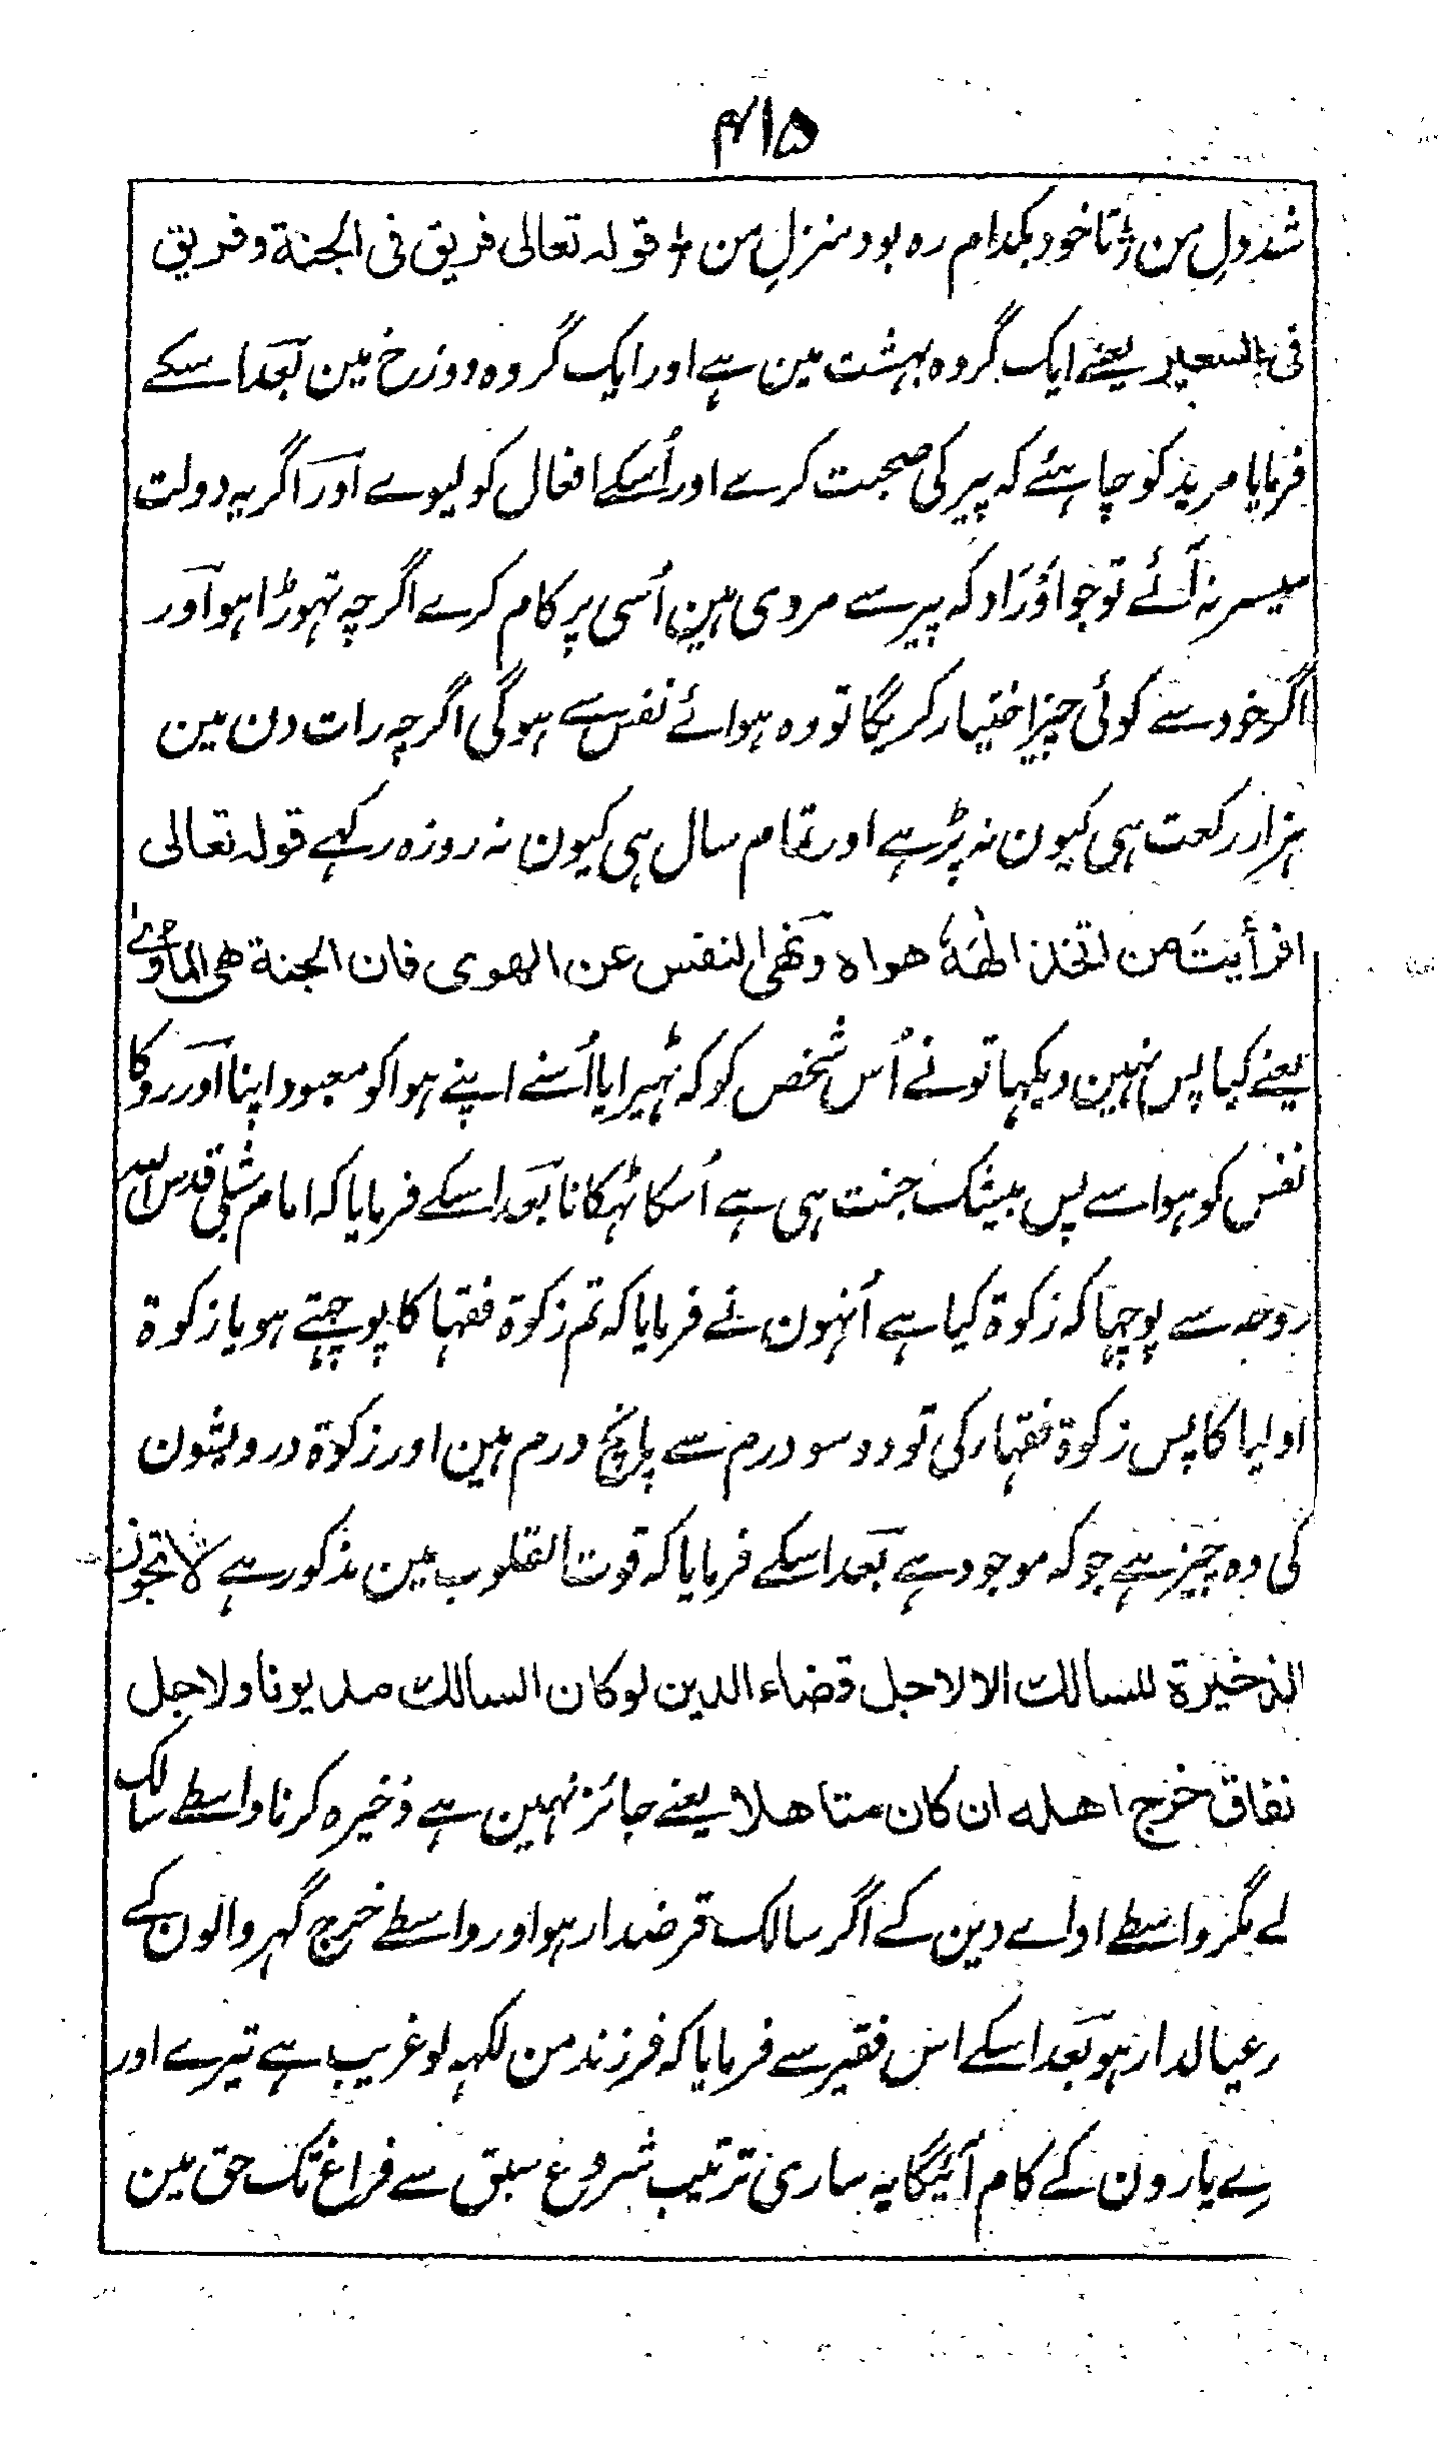 ۴۱۵
شد دلِ من ؛ تا خود بکدام رہ بود منزلِ من ؛ قولہ تعالی فریق فی الجنۃ و فریق
فی السعیر یعنے ایک گروہ بہشت مین ہے اور ایک گروہ دوزخ مین بعد اسکے
فرمایا مرید کو چاہئے کہ پیر کی صحبت کرے اور اُسکے افعال کو لیوے اور اگر یہ دولت
میسر نہ آئے تو جو اَوْرَاد کہ پیر سے مروی ہین اُسی پر کام کرے اگرچہ تہوڑا ہو اور
اگر خود سے کوئی چیز اختیار کریگا تو وہ ہوائے نفس سے ہوگی اگرچہ رات دن مین
ہزار رکعت ہی کیون نہ پڑہے اور تمام سال ہی کیون نہ روزہ رکہے قولہ تعالی
افرأیتَ من اتخذ الٰھَہٗ ھواہ ونَھی النفس عن الھوی فان الجنۃ ھی الماوٰے
یعنے کیا پس نہین دیکہا تونے اُس شخص کو کہ ٹہیرایا اُسنے اپنے ہوا کو معبود اپنا اور روکا
نفس کو ہوا سے پس بیشک جنت ہی ہے اُسکا ٹہکانا بعد اسکے فرمایا کہ امام شبلی قدس اللہ
روحہ سے پوچہا کہ زکوۃ کیا ہے اُنہون نے فرمایا کہ تم زکوۃ فقہا کا پوچہتے ہو یا زکوۃ
اولیا کا پس زکوۃ فقہاء کی تو دو سو درم سے پانچ درم ہین اور زکوۃ درویشون
کی وہ چیز ہے جو کہ موجود ہے بعد اسکے فرمایا کہ قوت القلوب مین مذکور ہے لا تجوز
الذخیرۃ للسالک الا لاجل قضاء الدین لو کان السالک مدیونا ولاجل
نفاق خرج اھلہ ان کان متاھلا یعنے جائز نہین ہے ذخیرہ کرنا واسطے سالک
لے مگر واسطے اداے دین کے اگر سالک قرضدار ہو اور واسطے خرچ گہر والون کے
ر عیالدار ہو بعد اسکے اس فقیر سے فرمایا کہ فرزند من لکہہ لو غریب ہے تیرے اور
رے یارون کے کام آئیگا یہ ساری ترتیب شروع سبق سے فراغ تک حق مین